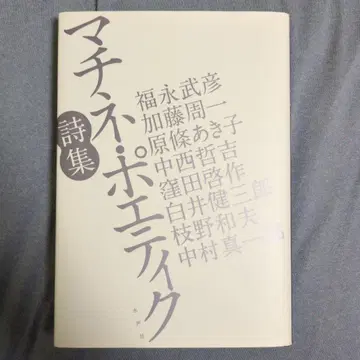 マチネ・ポエティク
詩集
福永武彦
加藤周一
原條あき子
中西哲吉
窪田啓作
白井健三郎
枝野和夫
中村真一郎